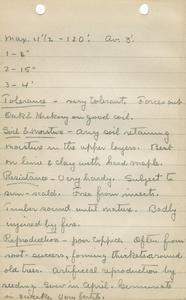 Max. 4 1/2 - 120'. Av. 3'.
1 - 8"
2 - 15"
3 - 4'
Tolerance - very tolerant. Forces out
Oak & Hickory on good soil.
Soil & moisture - Any soil retaining
moisture in the upper layers. Best
on lime & clay with hard maple.
Resistance - Very hardy. Subject to
sun-scald. Free from insects.
Timber sound until mature. Badly
injured by fire.
Reproduction - poor coppice. Often from
root-suckers, forming thickets around
old trees. Artificial reproduction by
seeding. Sow in April. Germinate
Very fertile.